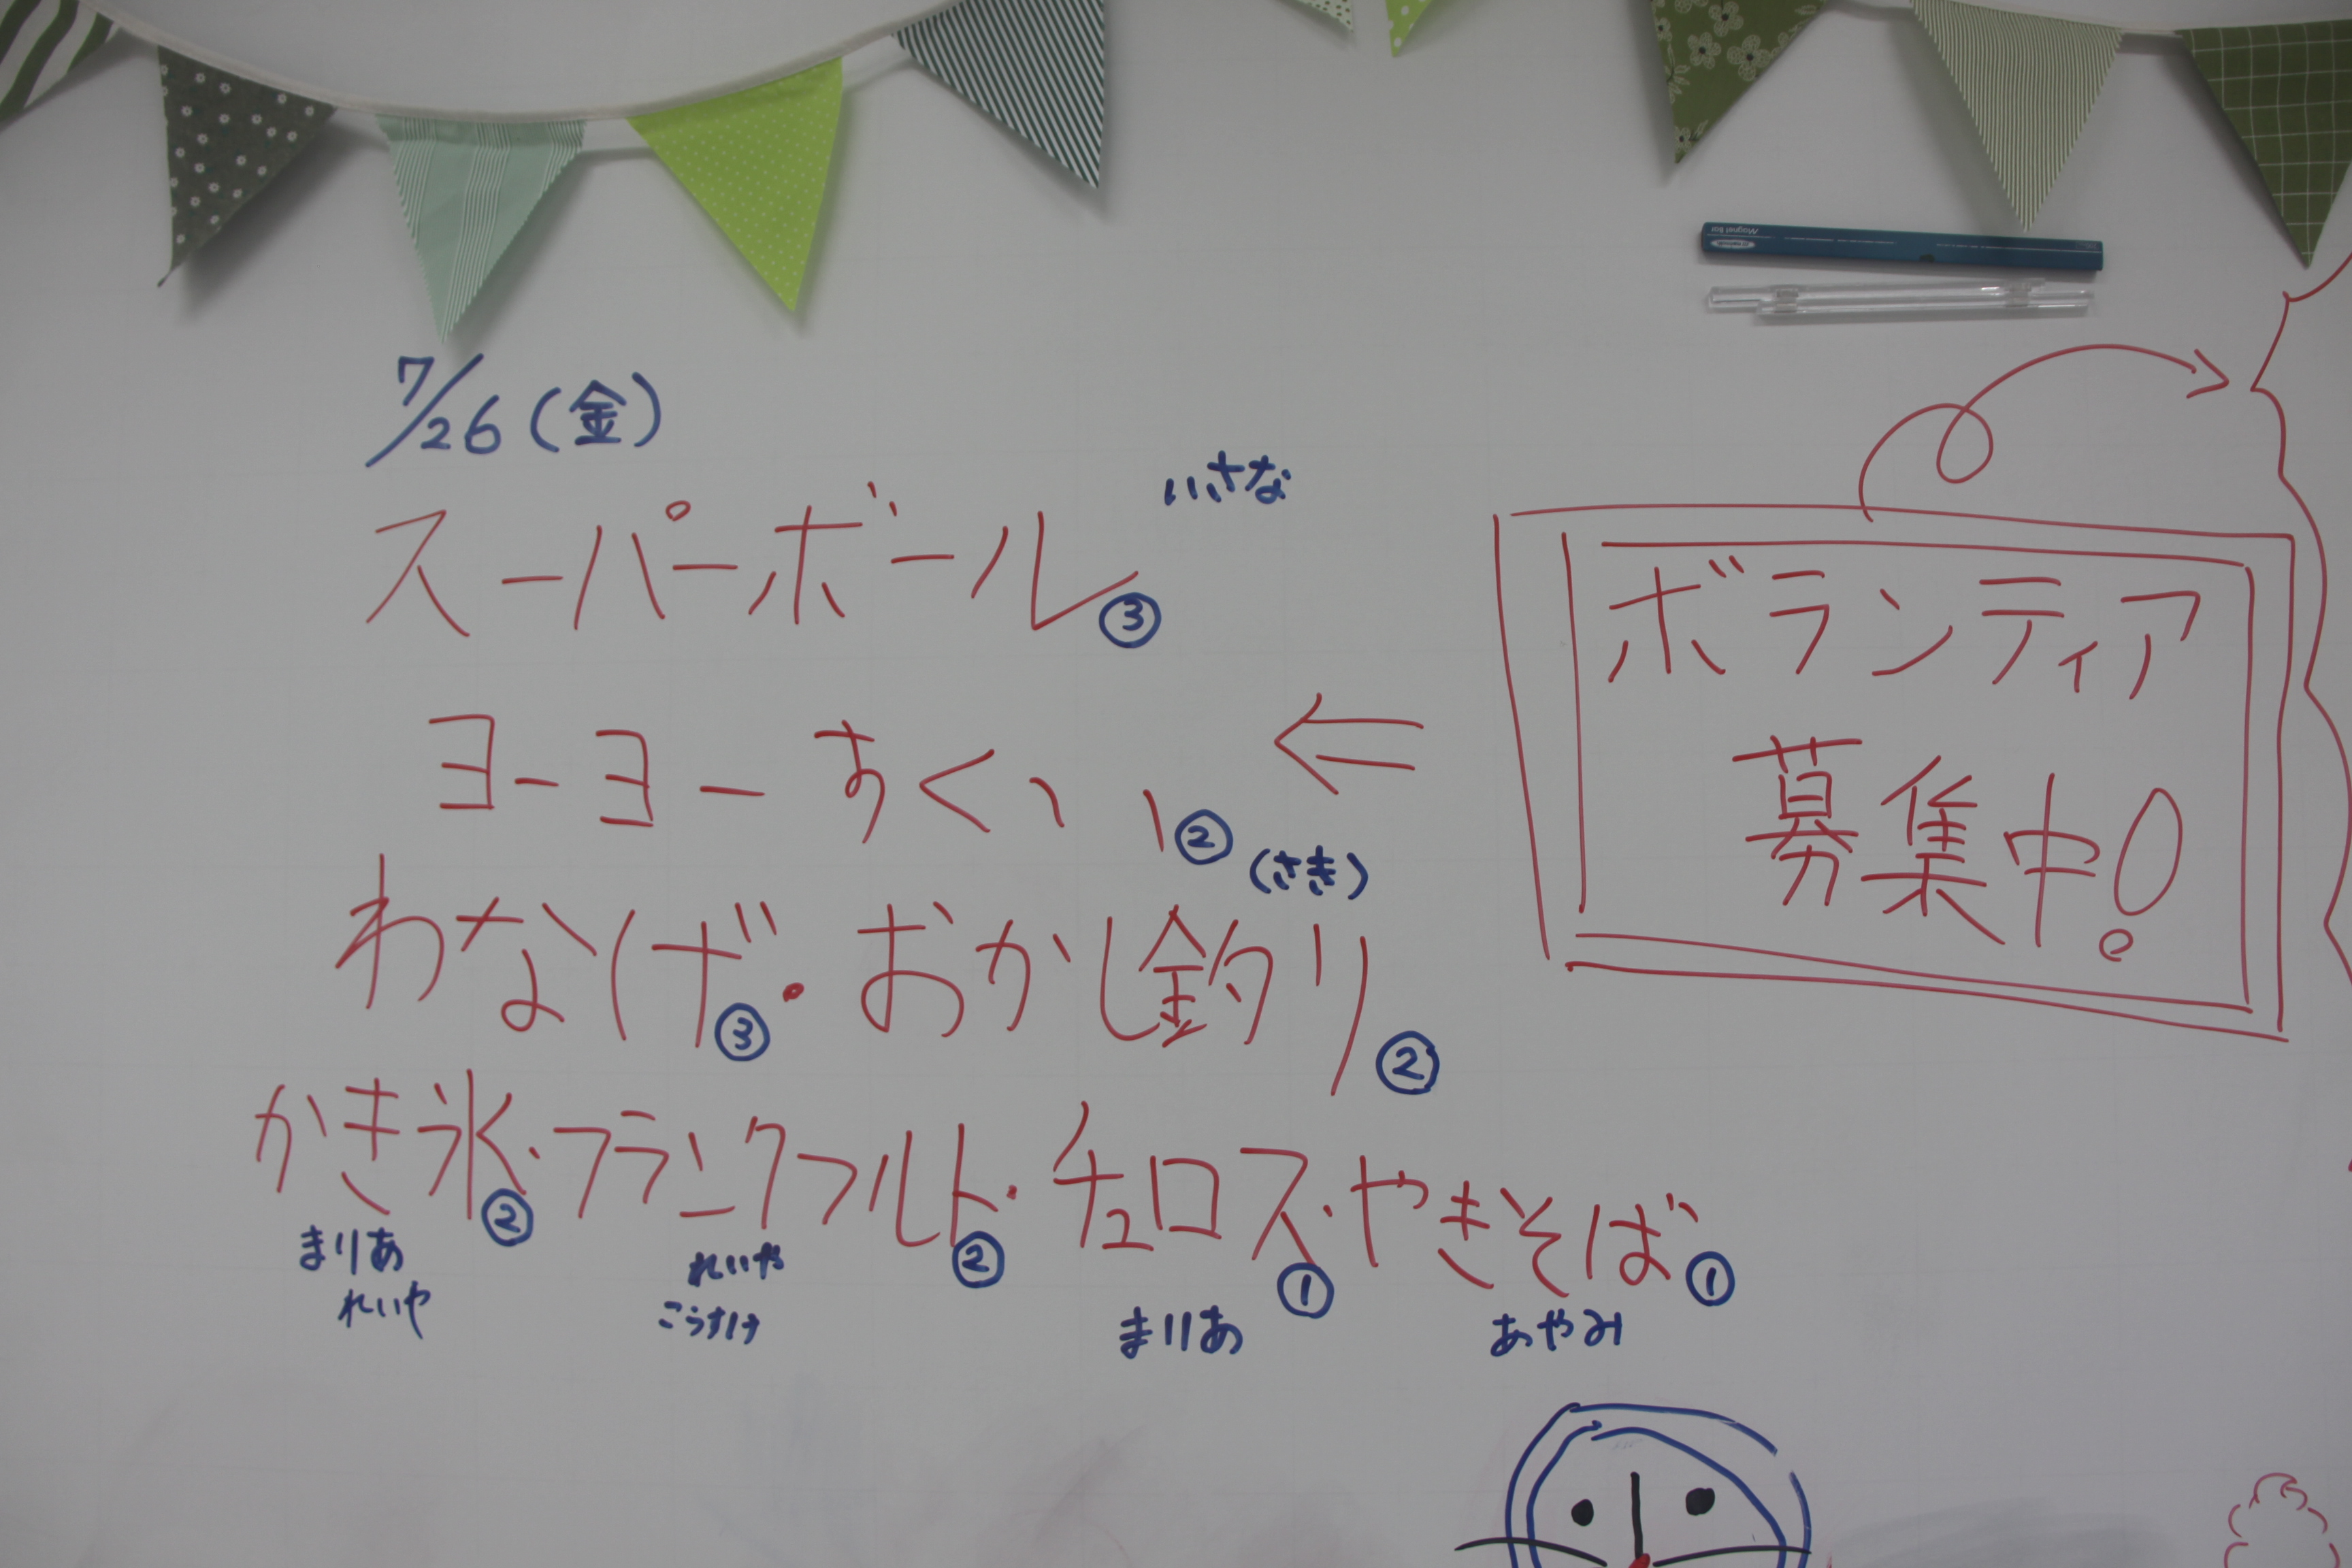 7/26(金)
いさな
スーパーボール③
ヨーヨーすくい②
(さき)
わなげ③・おかし釣り②
かき氷②・フランクフルト②・チュロス①・やきそば①
まりあ
れいや
れいや
こうすけ
まりあ
あやみ
ボランティア
募集中!
Magnet Bar